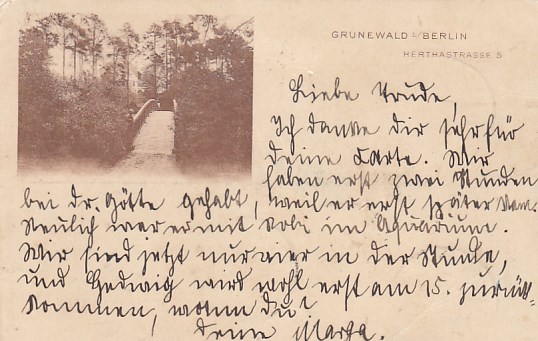 GRUNEWALD b/BERLIN
HERTHASTRASSE 5
Liebe Trude,
Ich danke dir sehr für
deine Karte. Wir
haben erst zwei Stunden
bei dr. Götte gehabt, weil er erst später kam.
Neulich war er mit Robi im Aquarium.
Wir sind jetzt nur vier in der Stunde,
und Hedwig wird wohl erst am 15. zurück-
kommen, wann du?
Deine Marga.